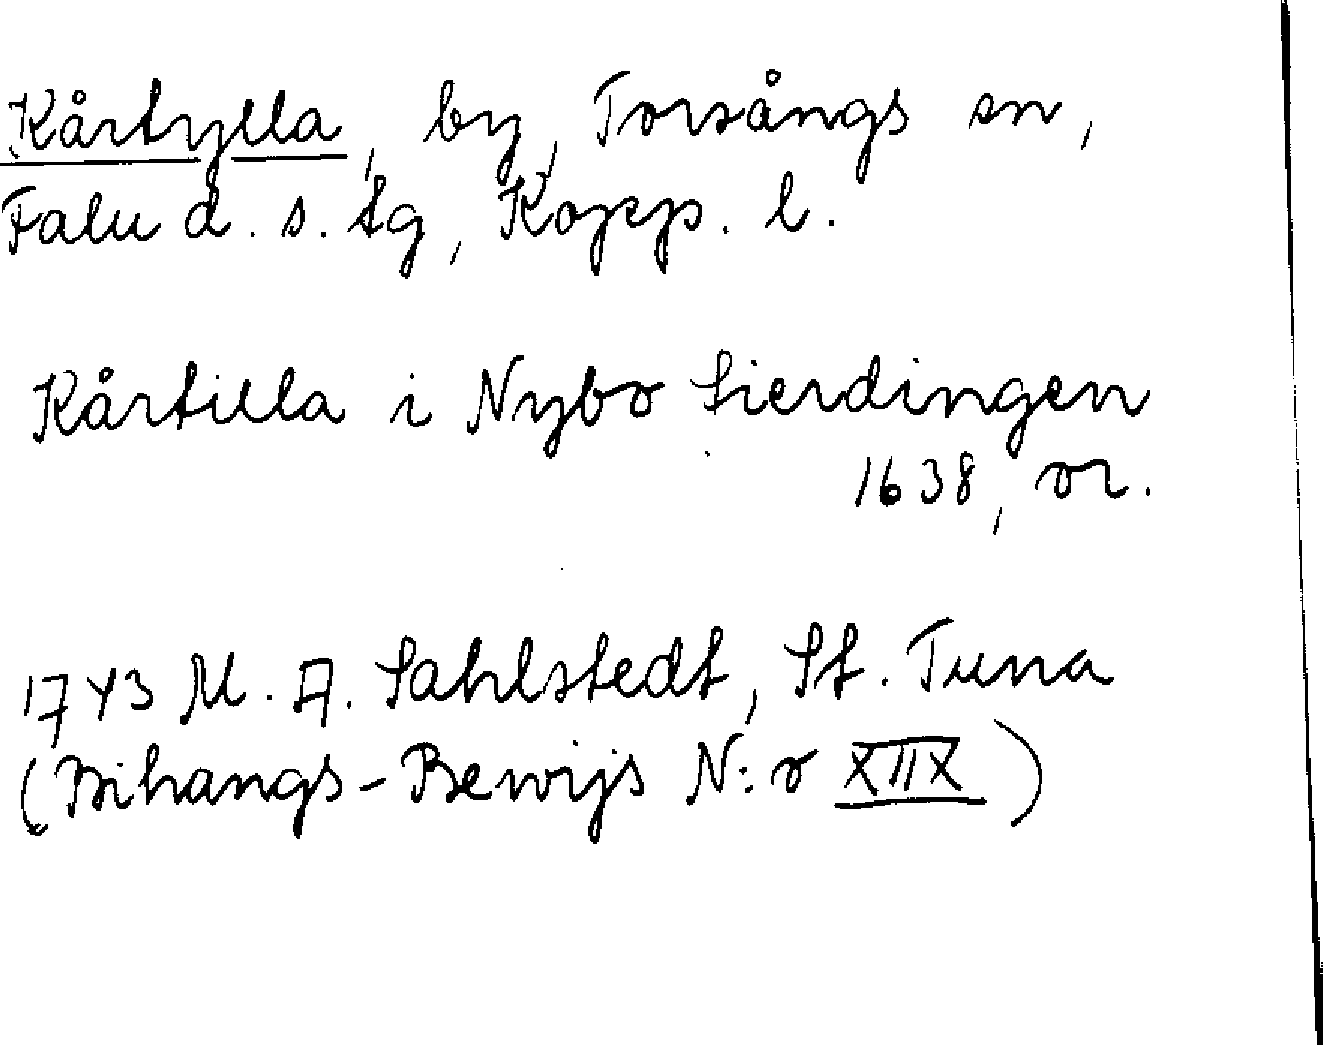 Kårtylla, by, Torsångs sn,
Falu d. s. tg, Kopp. l.
Kårtilla i Nybo fierdingen
1638, or.
1743 M. A. Sahlstedt, St. Tuna
(Bihangs-Bewijs N:o XIIX)